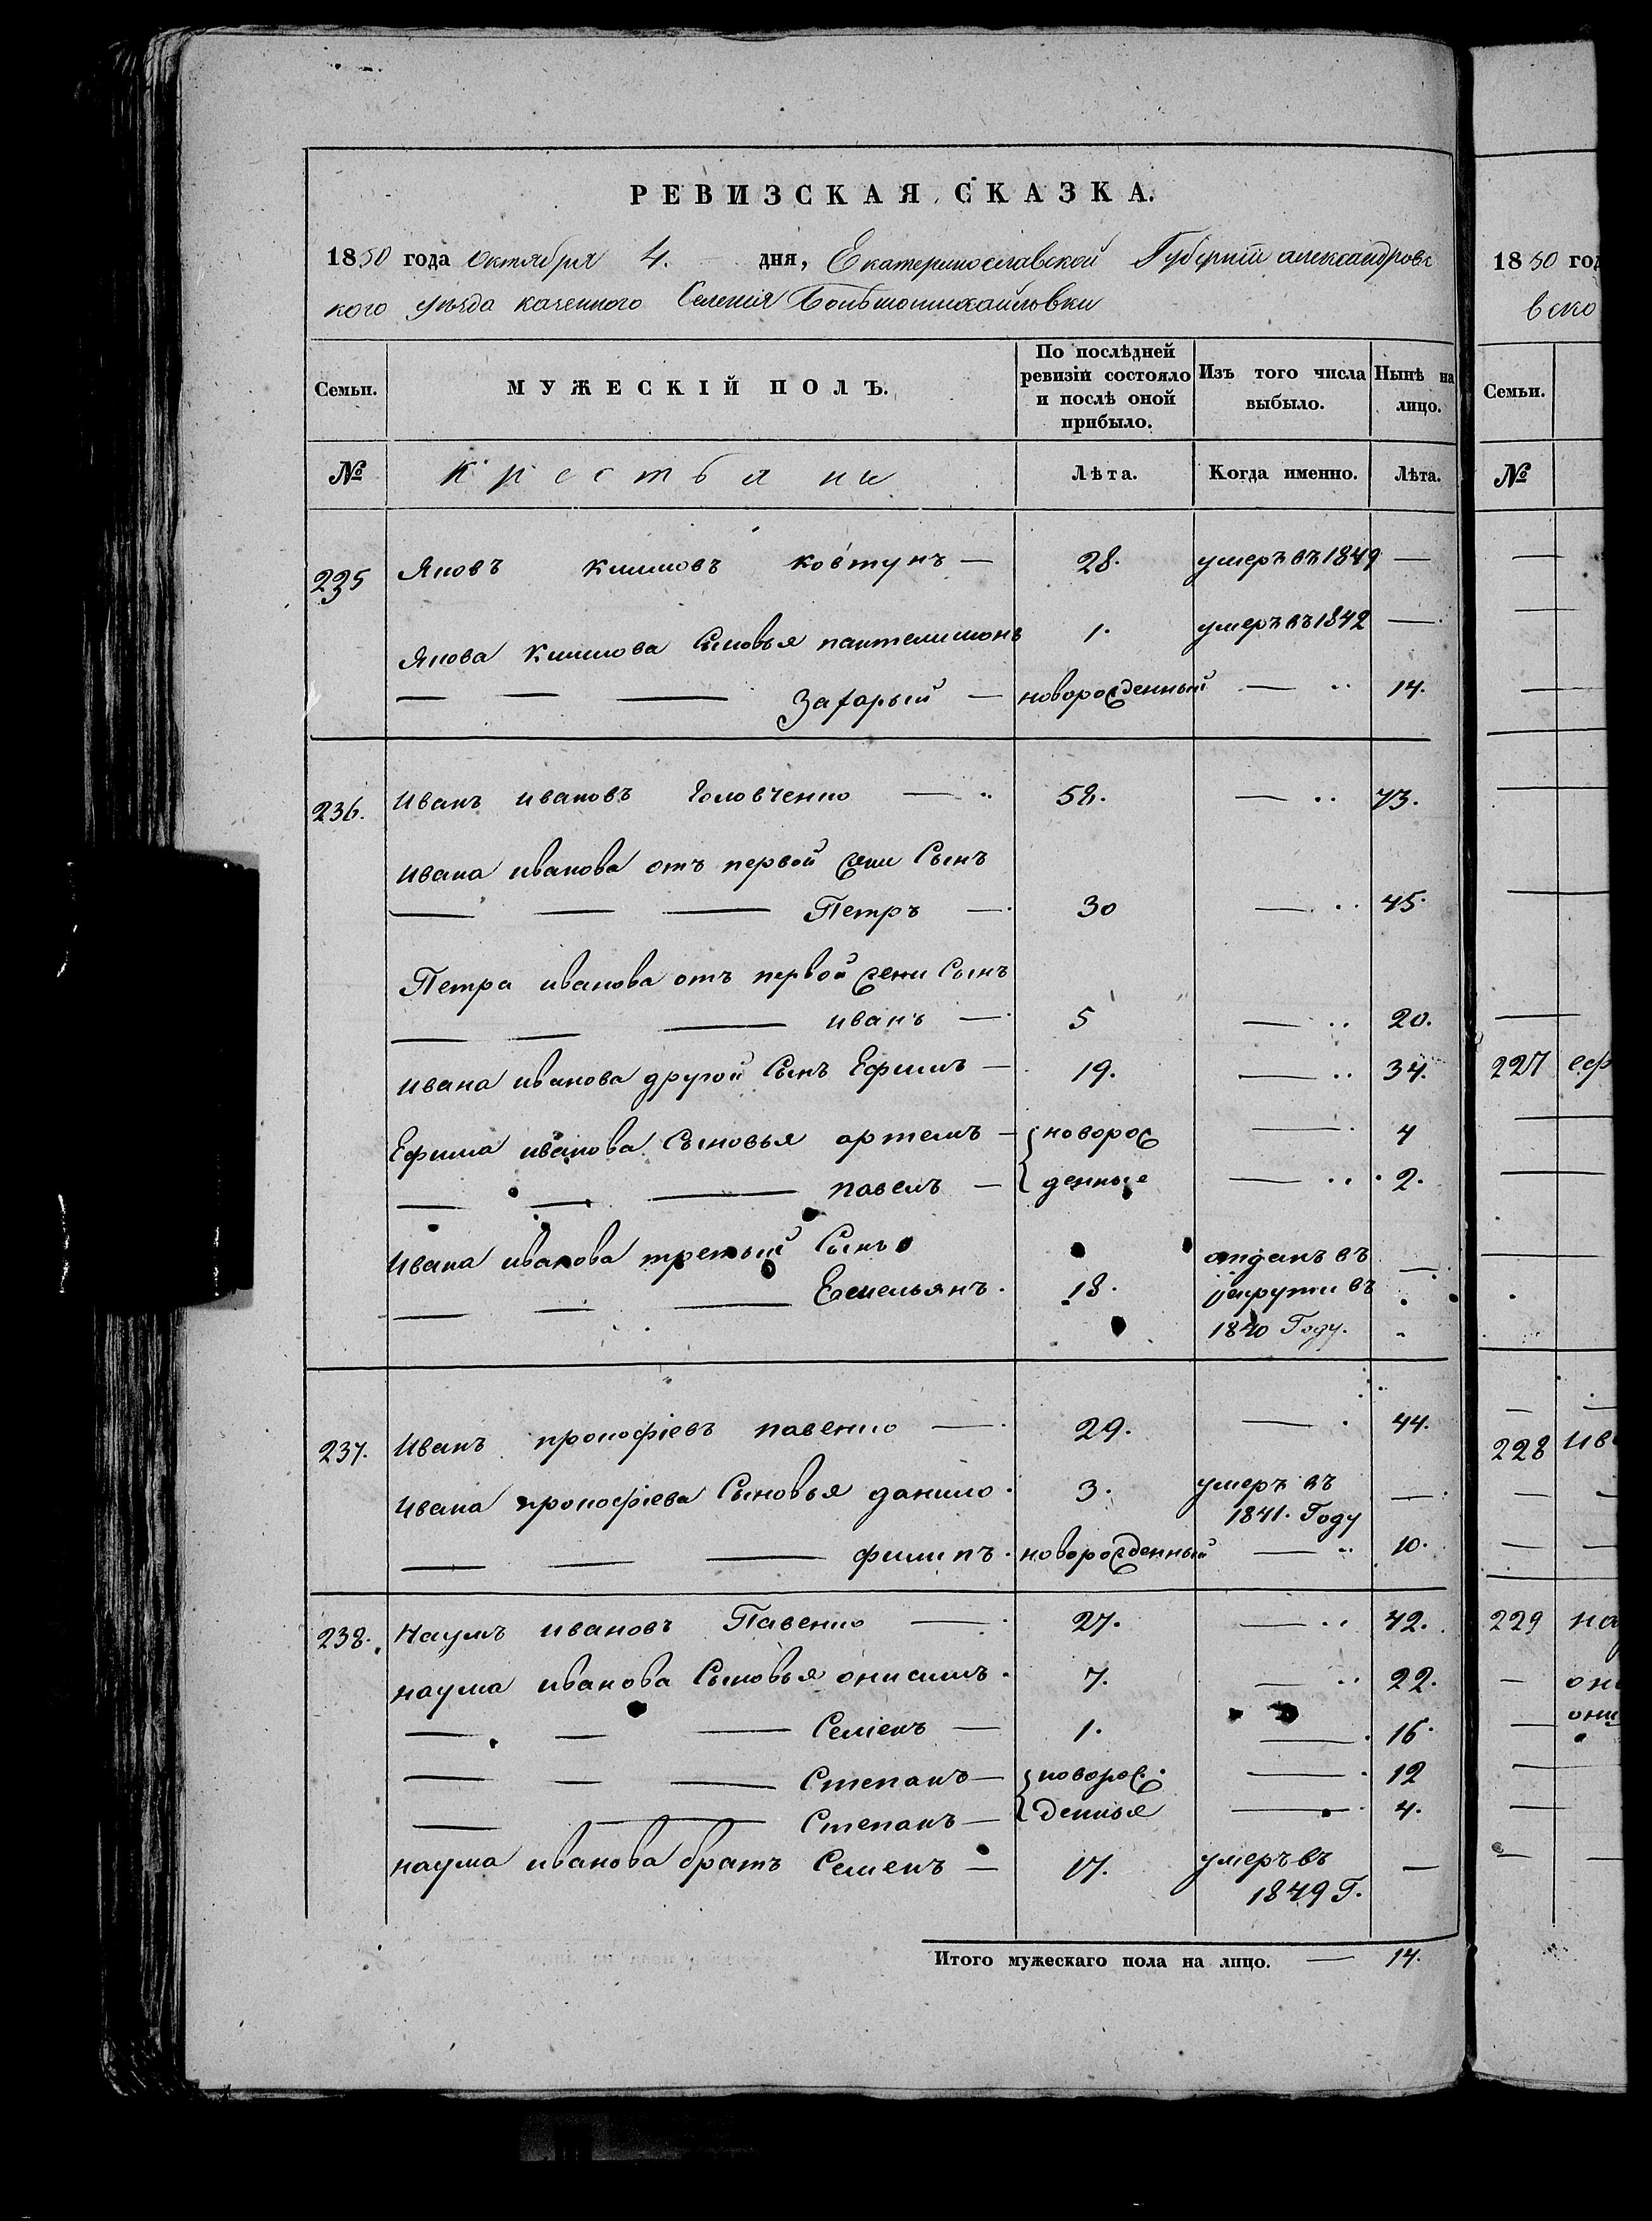 РЕВИЗСКАЯ СКАЗКА.
1850 года Октября 4. дня, Екатеринославской Губерніи александровс
кого уезда казенного Селенія Большомихайловки
Семьи. МУЖЕСКІЙ ПОЛЪ. По послѣдней ревизіи состояло и послѣ оной прибыло. Изъ того числа выбыло. Нынѣ на лицо.
№ Крестьяне Лѣта. Когда именно. Лѣта.
235 Яковъ климовъ ковтунъ — 28. умеръ въ 1849 —
Якова Климова Сыновья пантелимонъ 1. умеръ въ 1842 —
— — — Захарый — новорожденный — 14.
236. Иванъ ивановъ Головченко — 58. — 73.
ивана иванова отъ первой жены Сынъ
— — — Петръ — 30 — 45.
Петра иванова отъ первой жены Сынъ
— — — иванъ — 5 — 20.
ивана иванова другой Сынъ Ефимъ — 19. — 34.
Ефима иванова Сыновья артемъ — новорож — 4
— — — павелъ — денные — 2.
Ивана иванова третый Сынъ отданъ въ —
— — — Емельянъ. 18. рекруты въ
1840 Году.
237. Иванъ прокофіевъ павенко — 29. — 44.
ивана прокофіева Сыновья данило. 3. умеръ въ —
1841. Году
— — — филипъ. новорожденный — 10.
238. Наумъ ивановъ Павенко — 27. — 42.
наума иванова Сыновья онисимъ. 7. — 22.
— — — Семенъ — 1. — 16.
— — — Степанъ — новорож. — 12
— — Степанъ — денныя — 4.
наума иванова братъ Семенъ — 17. умеръ въ —
1849 Г.
Итого мужескаго пола на лицо. — 14.
1850 год
вско
Семьи.
№
227 еф
228 ив
229 на
они
они